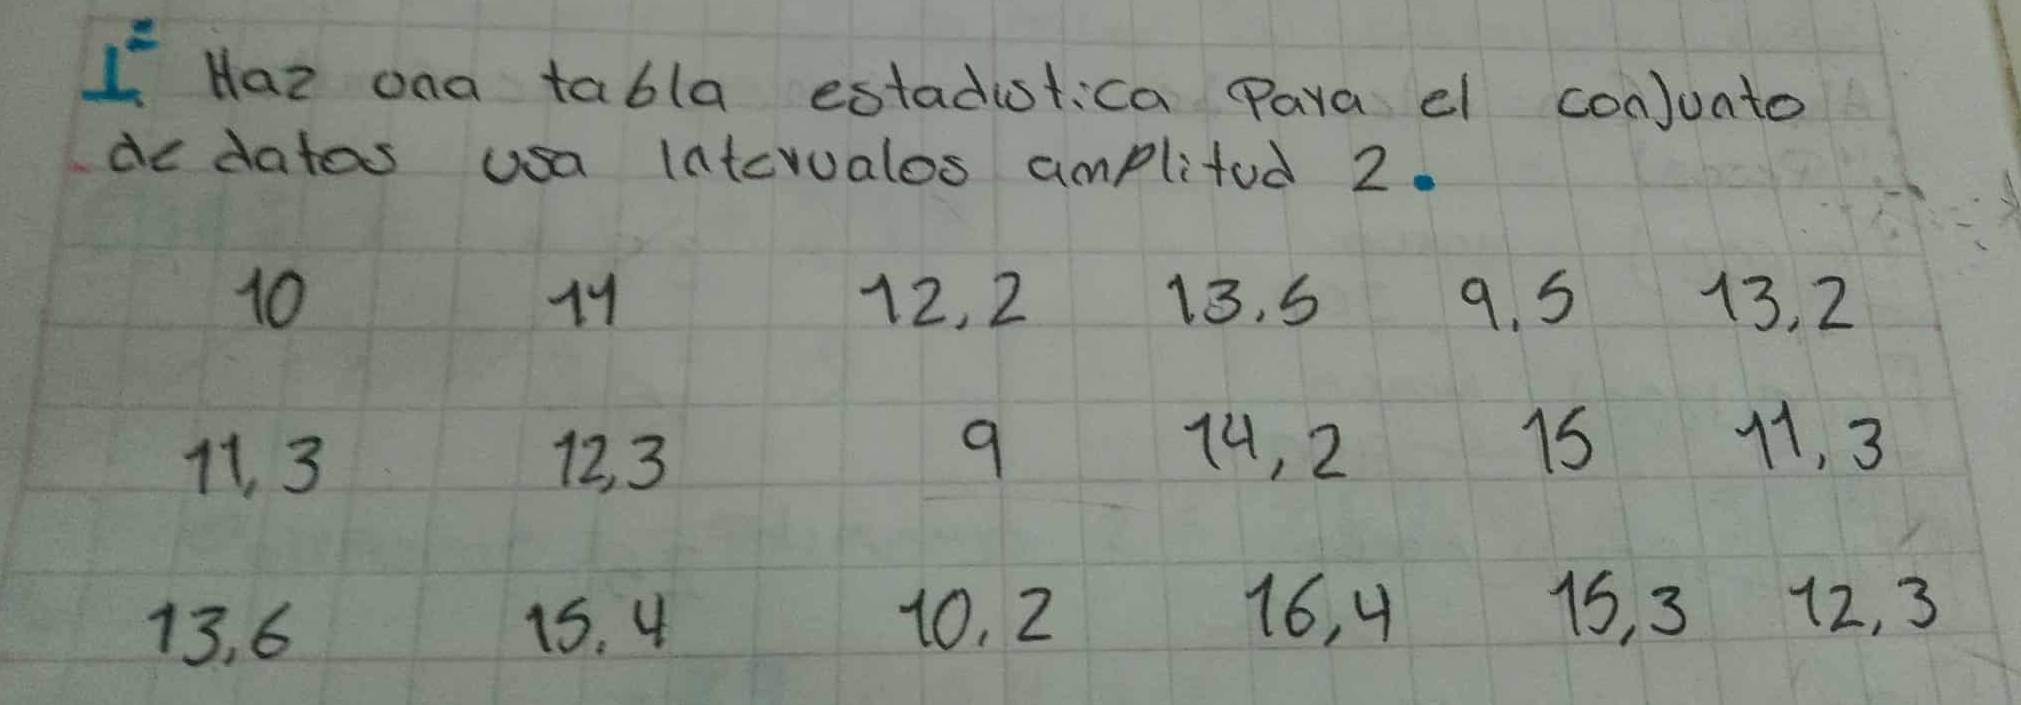 1= Haz una tabla estadistica Para el conjunto
de datos usa intervalos amplitud 2.
10 11 12,2 13.5 9,5 13,2
11,3 12,3 9 14,2 15 11,3
13,6 15.4 10,2 16,4 15,3 12,3